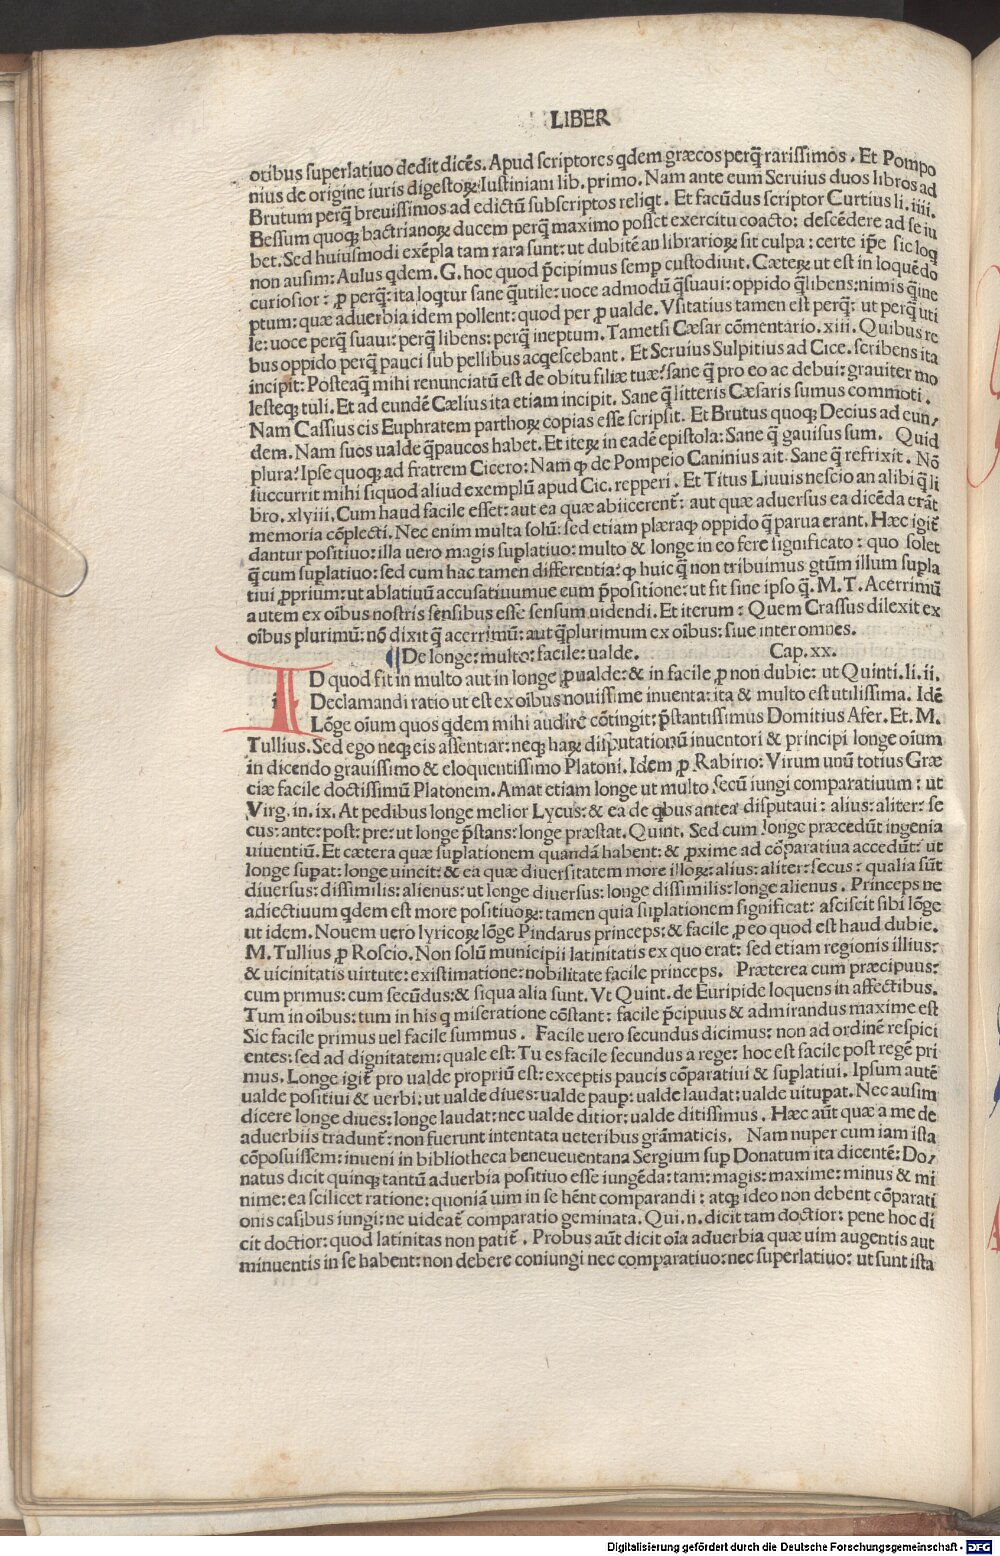 LIBER
oribus superlatiuo dedit dicēs. Apud scriptores qdem græcos perq̃ rarissimos. Et Pompo
nius de origine iuris digestoꝝ Iustiniani lib. primo. Nam ante eum Seruius duos libros ad
Brutum perq̃ breuissimos ad edictū subscriptos reliqt. Et facūdus scriptor Curtius li. iiii.
Bessum quoqꝫ bactrianoꝝ ducem perq̃ maximo posset exercitu coacto: descēdere ad se iu
bet. Sed huiusmodi exēpla tam rara sunt: ut dubitē an librarioꝝ sit culpa: certe ip̄e sic loq
non ausim: Aulus qdem. G. hoc quod p̄cipimus semꝑ custodiuit. Cæteꝝ ut est in loquēdo
curiosior: ꝓ perq̃: ita loqtur sane q̃utile: uoce admodū q̃suaui: oppido q̃libens: nimis q̃ine
ptum: quæ aduerbia idem pollent: quod per ꝓ ualde. Vsitatius tamen est perq̃: ut perq̃ uti
le: uoce perq̃ suaui: perq̃ libens: perq̃ ineptum. Tametsi Cæsar cōmentario. xiii. Quibus re
bus oppido perq̃ pauci sub pellibus acqescebant. Et Seruius Sulpitius ad Cice. scribens ita
incipit: Posteaq̃ mihi renunciatū est de obitu filiæ tuæ: sane q̃ pro eo ac debui: grauiter mo
lesteqꝫ tuli. Et ad eundē Cælius ita etiam incipit. Sane q̃ litteris Cæsaris sumus commoti.
Nam Cassius cis Euphratem parthoꝝ copias esse scripsit. Et Brutus quoqꝫ Decius ad eun/
dem. Nam suos ualde q̃paucos habet. Et iteꝝ in eadē epistola: Sane q̃ gauisus sum. Quid
plura? Ipse quoqꝫ ad fratrem Cicero: Nam ꝙ de Pompeio Caninius ait. Sane q̃ refrixit. Nō
succurrit mihi siquod aliud exemplū apud Cic. repperi. Et Titus Liuuis nescio an alibi q̃ li
bro. xlviii. Cum haud facile esset: aut ea quæ abiicerent̄: aut quæ aduersus ea dicēda erāt
memoria cōplecti. Nec enim multa solū: sed etiam plæraqꝫ oppido q̃ parua erant. Hæc igit̄
dantur positiuo: illa uero magis suꝑlatiuo: multo & longe in eo fere significato: quo solet
q̃ cum suꝑlatiuo: sed cum hac tamen differentia: ꝙ huic q̃ non tribuimus gtūm illum suꝑla
tiui ꝓprium: ut ablatiuū accusatiuumue cum p̄positione: ut fit sine ipso q̃. M. T. Acerrimū
autem ex oībus nostris sensibus esse sensum uidendi. Et iterum: Quem Crassus dilexit ex
oībus plurimū: nō dixit q̃ acerrimū: aut q̃plurimum ex oībus: siue inter omnes.
De longe: multo: facile: ualde. Cap. xx.
ID quod fit in multo aut in longe ꝓ ualde: & in facile ꝓ non dubie: ut Quinti. li. ii.
Declamandi ratio ut est ex oībus nouissime inuenta: ita & multo est utilissima. Idē
Lōge oīum quos qdem mihi audire cōtingit: p̄stantissimus Domitius Afer. Et. M.
Tullius. Sed ego neqꝫ eis assentiar: neqꝫ haꝝ disputationū inuentori & principi longe oīum
in dicendo grauissimo & eloquentissimo Platoni. Idem ꝓ Rabirio: Virum unū totius Græ
ciæ facile doctissimū Platonem. Amat etiam longe ut multo secū iungi comparatiuum: ut
Virg. in. ix. At pedibus longe melior Lycus: & ea de qbus antea disputaui: alius: aliter: se
cus: ante: post: pre: ut longe p̄stans: longe præstat. Quint. Sed cum longe præcedūt ingenia
uiuentiū. Et cætera quæ suꝑlationem quandā habent: & ꝓxime ad cōparatiua accedūt: ut
longe suꝑat: longe uincit: & ea quæ diuersitatem more illoꝝ: alius: aliter: secus: qualia sūt
diuersus: dissimilis: alienus: ut longe diuersus: longe dissimilis: longe alienus. Princeps ne
adiectiuum qdem est more positiuoꝝ: tamen quia suꝑlationem significat: asciscit sibi lōge
ut idem. Nouem uero lyricoꝝ lōge Pindarus princeps: & facile ꝓ eo quod est haud dubie.
M. Tullius ꝓ Roscio. Non solū municipii latinitatis ex quo erat: sed etiam regionis illius:
& uicinitatis uirtute: existimatione: nobilitate facile princeps. Præterea cum præcipuus:
cum primus: cum secūdus: & siqua alia sunt. Vt Quint. de Euripide loquens in affectibus.
Tum in oībus: tum in his q miseratione cōstant: facile p̄cipuus & admirandus maxime est
Sic facile primus uel facile summus. Facile uero secundus dicimus: non ad ordinē respici
entes: sed ad dignitatem: quale est: Tu es facile secundus a rege: hoc est facile post regē pri
mus. Longe igit̄ pro ualde propriū est: exceptis paucis cōparatiui & suꝑlatiui. Ipsum autē
ualde positiui & uerbi: ut ualde diues: ualde pauꝑ: ualde laudat: ualde uituꝑat. Nec ausim
dicere longe diues: longe laudat: nec ualde ditior: ualde ditissimus. Hæc aūt quæ a me de
aduerbiis tradunt̄: non fuerunt intentata ueteribus grāmaticis. Nam nuper cum iam ista
cōposuissem: inueni in bibliotheca beneueuentana Sergium suꝑ Donatum ita dicentē: Do/
natus dicit quinqꝫ tantū aduerbia positiuo esse iungēda: tam: magis: maxime: minus & mi
nime: ea scilicet ratione: quoniā uim in se hēnt comparandi: atqꝫ ideo non debent cōparati
onis casibus iungi: ne uideat̄ comparatio geminata. Qui. n. dicit tam doctior: pene hoc di
cit doctior: quod latinitas non patit̄. Probus aūt dicit oīa aduerbia quæ uim augentis aut
minuentis in se habent: non debere coniungi nec comparatiuo: nec superlatiuo: ut sunt ista
Digitalisierung gefördert durch die Deutsche Forschungsgemeinschaft - DFG